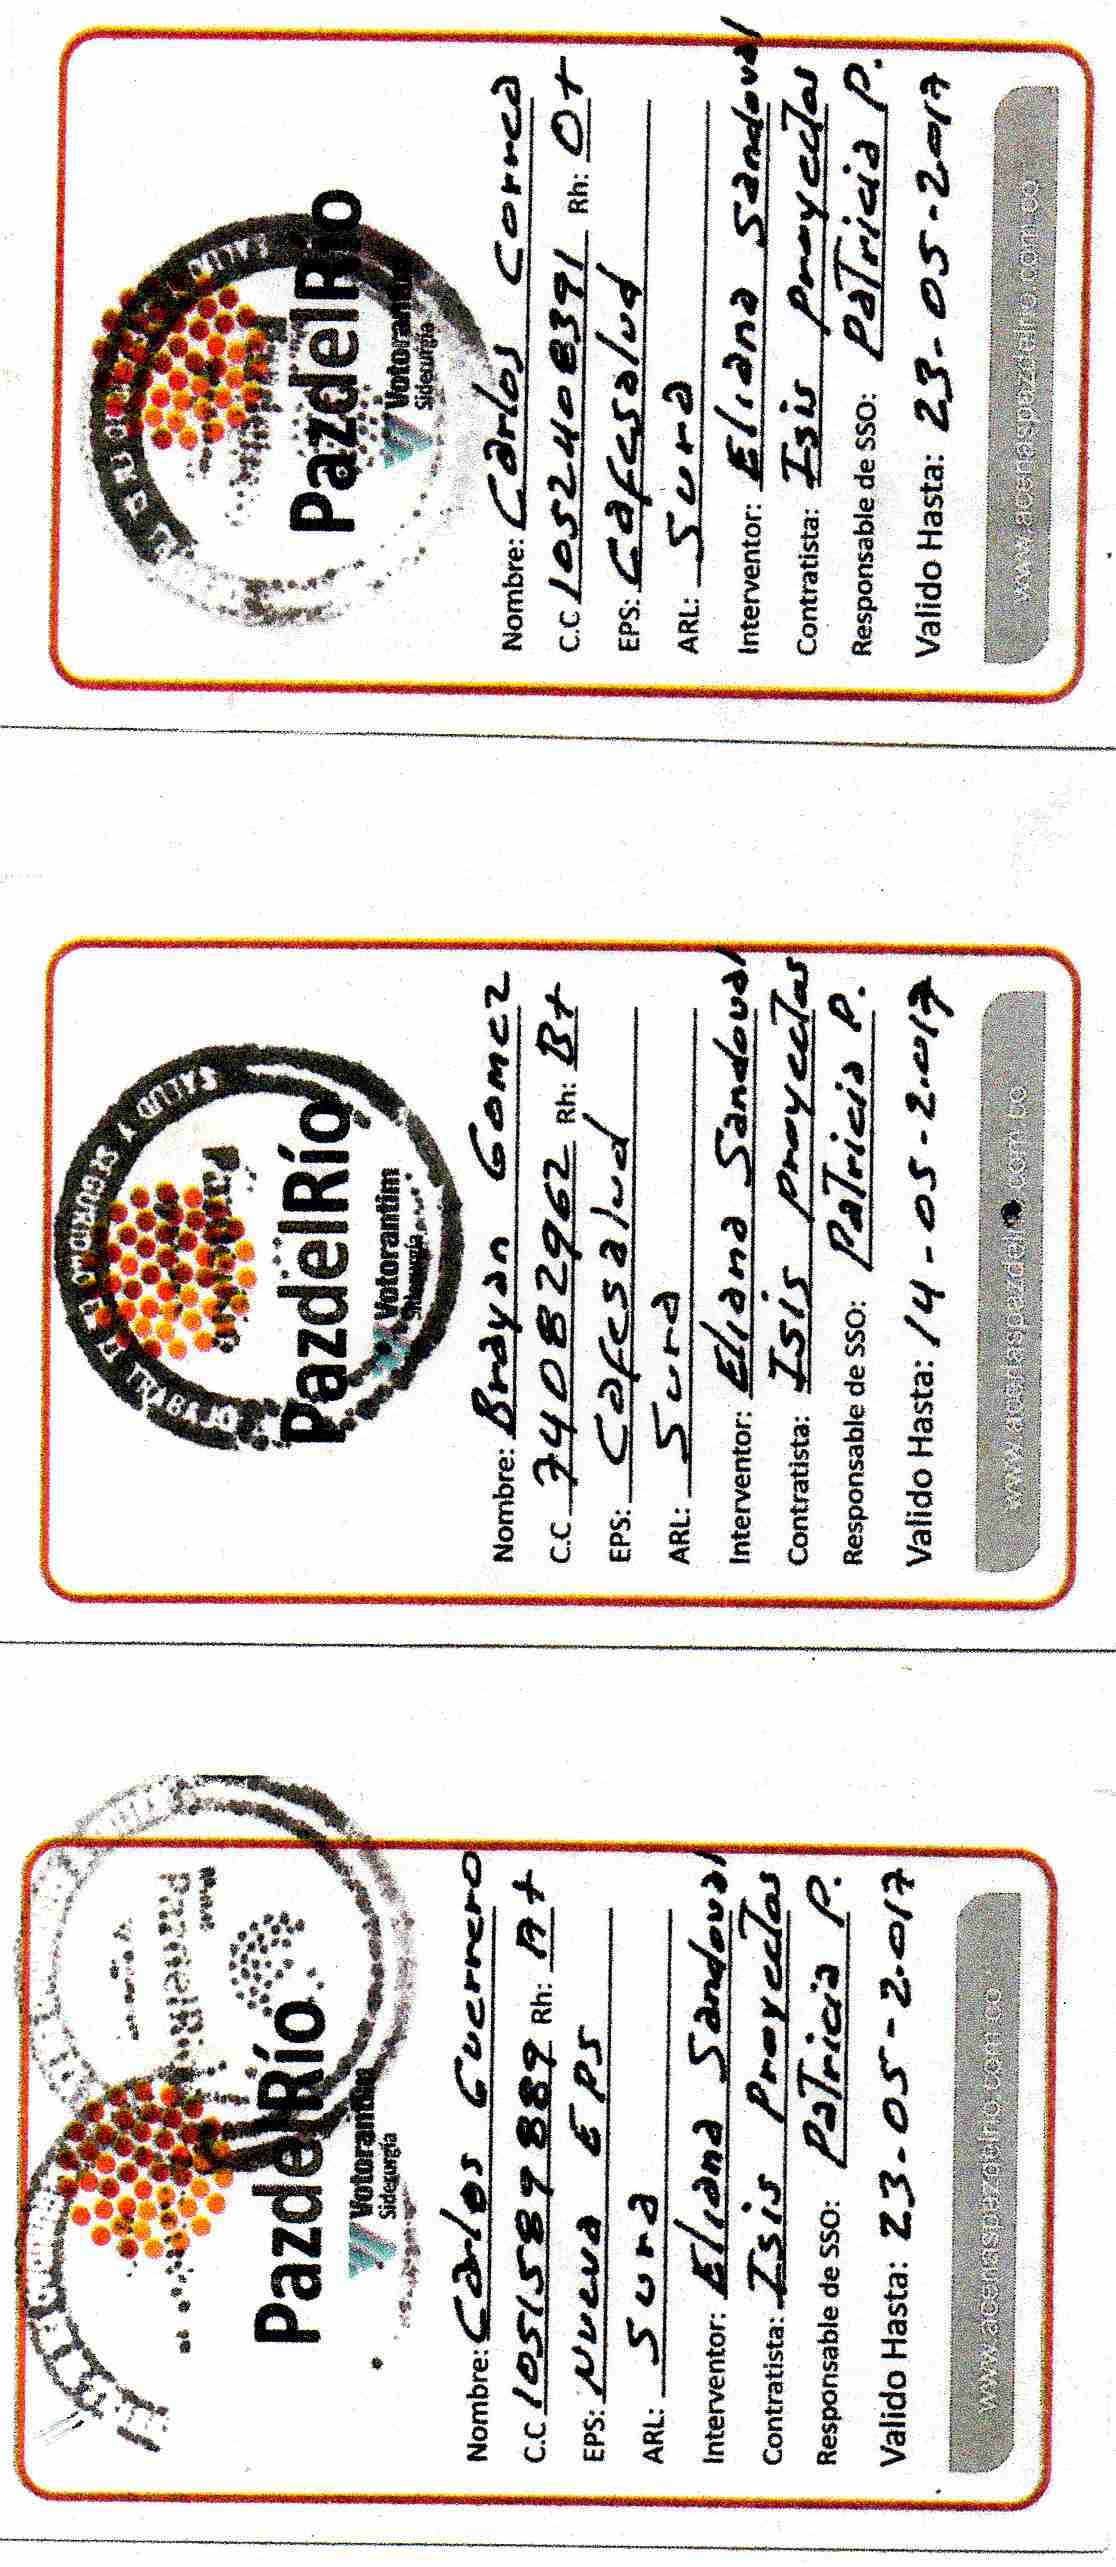 PazdelRío
Votorantim
Siderurgia
Nombre: Carlos Guerrero
C.C 1051589889 Rh: A+
EPS: Nueva EPS
ARL: Sura
Interventor: Eliana Sandoval
Contratista: Isis Proyectos
Responsable de SSO: Patricia P.
Valido Hasta: 23-05-2.017
www.aceriaspazdelrio.com.co
SEGURIDAD Y SALUD
TRABAJO
PazdelRío
Votorantim
Siderurgia
Nombre: Brayan Gomez
C.C 74082962 Rh: B+
EPS: Cafesalud
ARL: Sura
Interventor: Eliana Sandoval
Contratista: Isis Proyectos
Responsable de SSO: Patricia P.
Valido Hasta: 14-05-2.017
www.aceriaspazdelrio.com.co
PazdelRío
Votorantim
Siderurgia
Nombre: Carlos Correa
C.C 1052408391 Rh: O+
EPS: Cafesalud
ARL: Sura
Interventor: Eliana Sandoval
Contratista: Isis Proyectos
Responsable de SSO: Patricia P.
Valido Hasta: 23-05-2017
www.aceriaspazdelrio.com.co